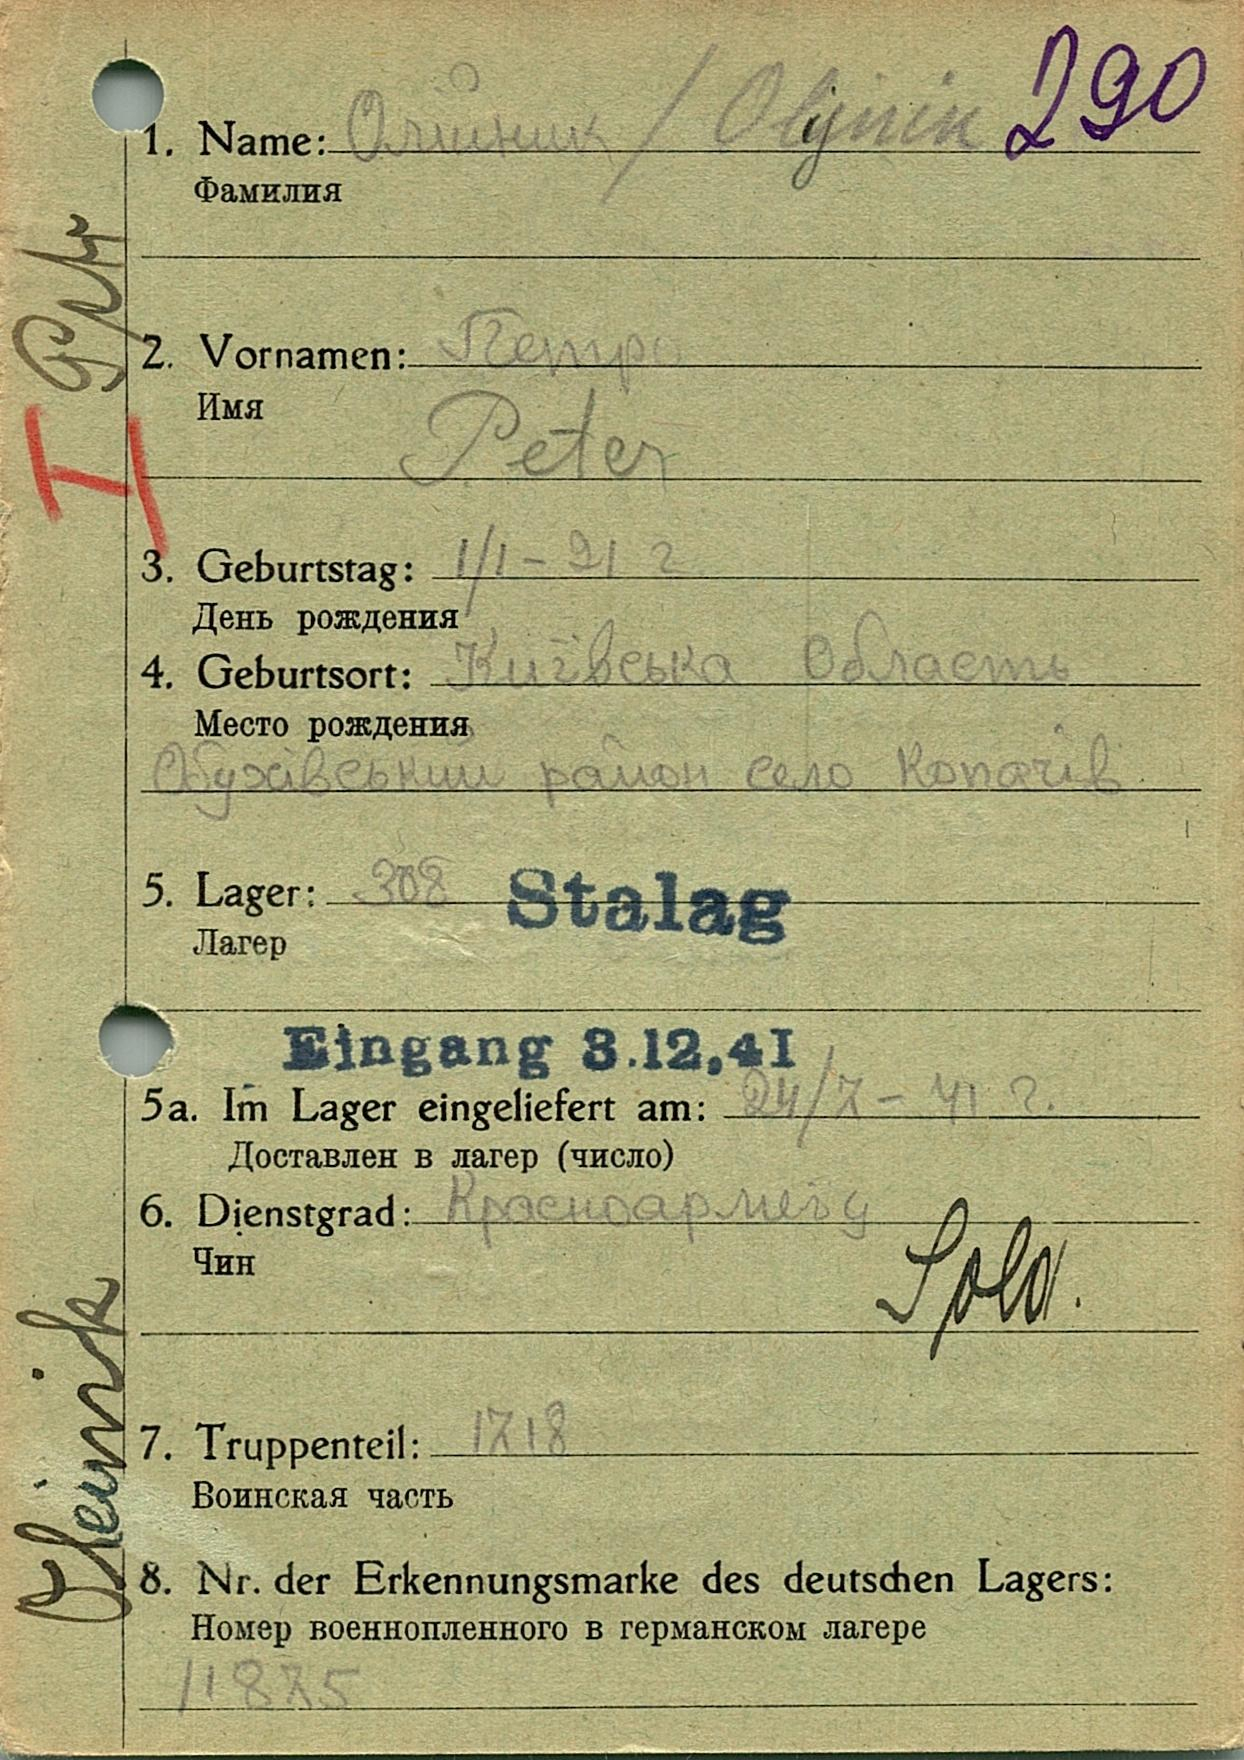 290
1. Name: Олійник / Olijnik
Фамилия
2. Vornamen: Петро
Имя
Peter
3. Geburtstag: 1/1 - 21 г
День рождения
4. Geburtsort: Київська Область
Место рождения
Обухівський район село Копачів
5. Lager: 308 Stalag
Лагер
Eingang 3.12.41
5a. Im Lager eingeliefert am: 24/7 - 41 г.
Доставлен в лагер (число)
6. Dienstgrad: Красноармеец
Чин
Sold.
7. Truppenteil: 1718
Воинская часть
8. Nr. der Erkennungsmarke des deutschen Lagers:
Номер военнопленного в германском лагере
11875
Oleinik